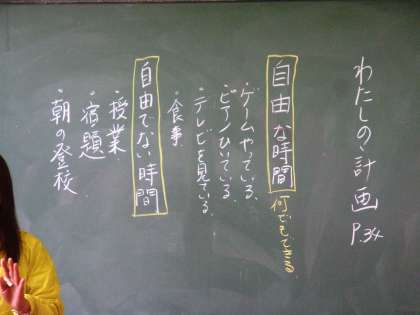 わたしの計画 P.34
自由な時間 何でもできる
・ゲームやっている。
・ピアノひいている。
・テレビを見ている。
・食事
自由でない時間
・授業
・宿題
・朝の登校